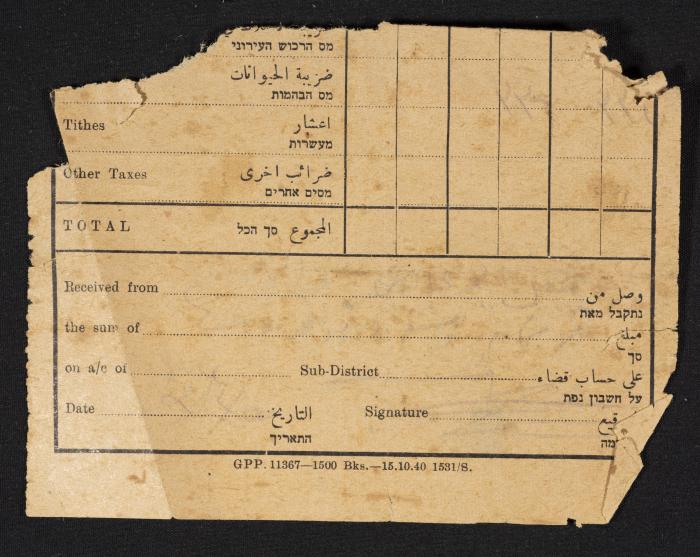 מס הרכוש העירוני
ضريبة الحيوانات
מס הבהמות
Tithes اعشار
מעשרות
Other Taxes ضرائب اخرى
מסים אחרים
TOTAL المجموع סך הכל
Received from وصل من
נתקבל מאת
the sum of مبلغ
סך
on a/c of Sub-District على حساب قضاء
על חשבון נפת
Date التاريخ Signature
התאריך
GPP. 11367—1500 Bks.—15.10.40 1531/S.